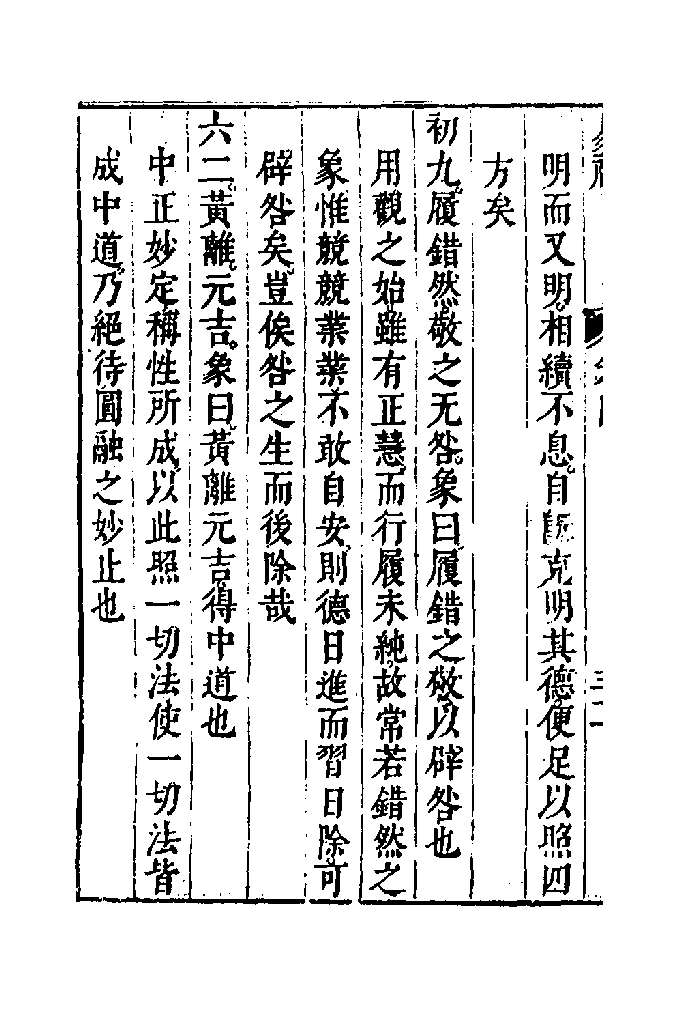 明而又明相續不息自既克明其德便足以照四
方矣
初九履錯然敬之无咎象曰履錯之敬以辟咎也
用觀之始雖有正慧而行履未純故常若錯然之
象惟競競業業不敢自安則德日進而習日除可
辟咎矣豈俟咎之生而後除哉
六二黃離元吉象曰黃離元吉得中道也
中正妙定稱性所成以此照一切法使一切法皆
成中道乃絕待圓融之妙止也